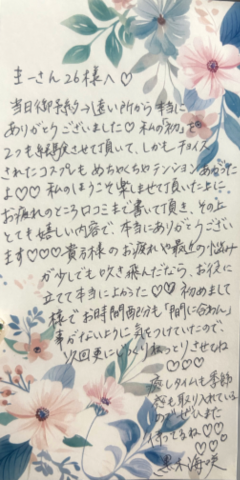 まーさん26様へ♡
当日御予約→遠い所から本当に
ありがとうございました♡ 私の初を
2つも経験させて頂いて、しかもチョイス
されたコスプレもめちゃくちゃテンションあがった
よ♡♡ 私のほうこそ楽しませて頂いた上に、
お疲れのところ口コミまで書いて頂き、その上
とても嬉しい内容で、本当にありがとうござい
ます♡♡♡ 貴方様のお疲れや最近のお悩み
が少しでも吹き飛んだなら、お役に
立てて本当によかった♡♡ 初めまして
様でお時間配分も「間に合わん」
事がないように気をつけていたので、
次回更にじっくりねっとりさせてね
♡♡♡
癒しタイムも季節
感も取り入れている
のでぜひまた
待ってるね♡♡